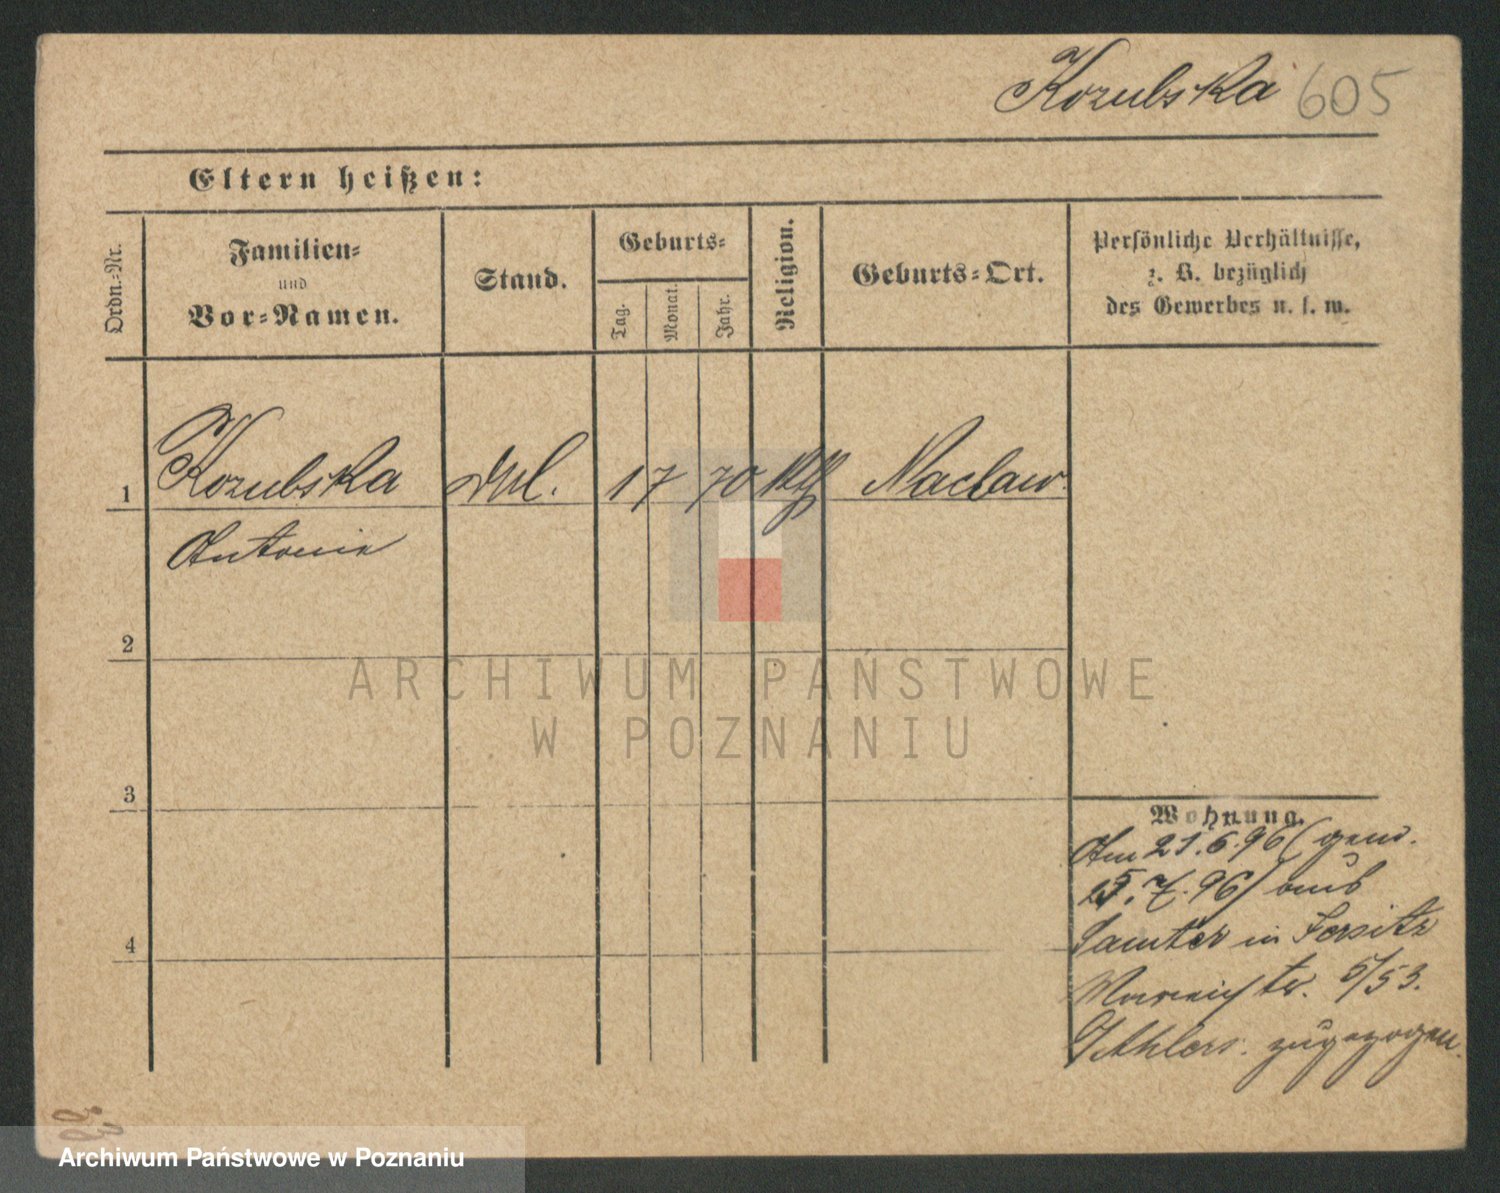 Kozubska 605
Eltern heißen:
Ordn.-Nr.
Familien-
und
Vor-Namen.
Stand.
Geburts-
Tag.
Monat.
Jahr.
Religion.
Geburts-Ort.
Persönliche Verhältnisse,
z. B. bezüglich
des Gewerbes u. s. w.
1 Kozubska 17 70 Naclaw
Antonie
2
ARCHIWUM PAŃSTWOWE
W POZNANIU
3
Wohnung.
Am 21.6.96 (gem.
7.96) aus
Samter in Jersitz
5/53.
zugezogen.
4
Archiwum Państwowe w Poznaniu